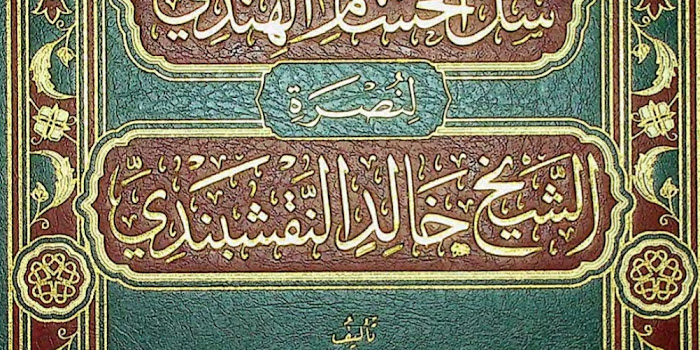 سَلُّ الحُسَامِ الهِنْدِيِّ
لِنُصْرَةِ
الشَّيْخِ خَالِدِ النَّقْشَبَنْدِيِّ
تَأْلِيفُ